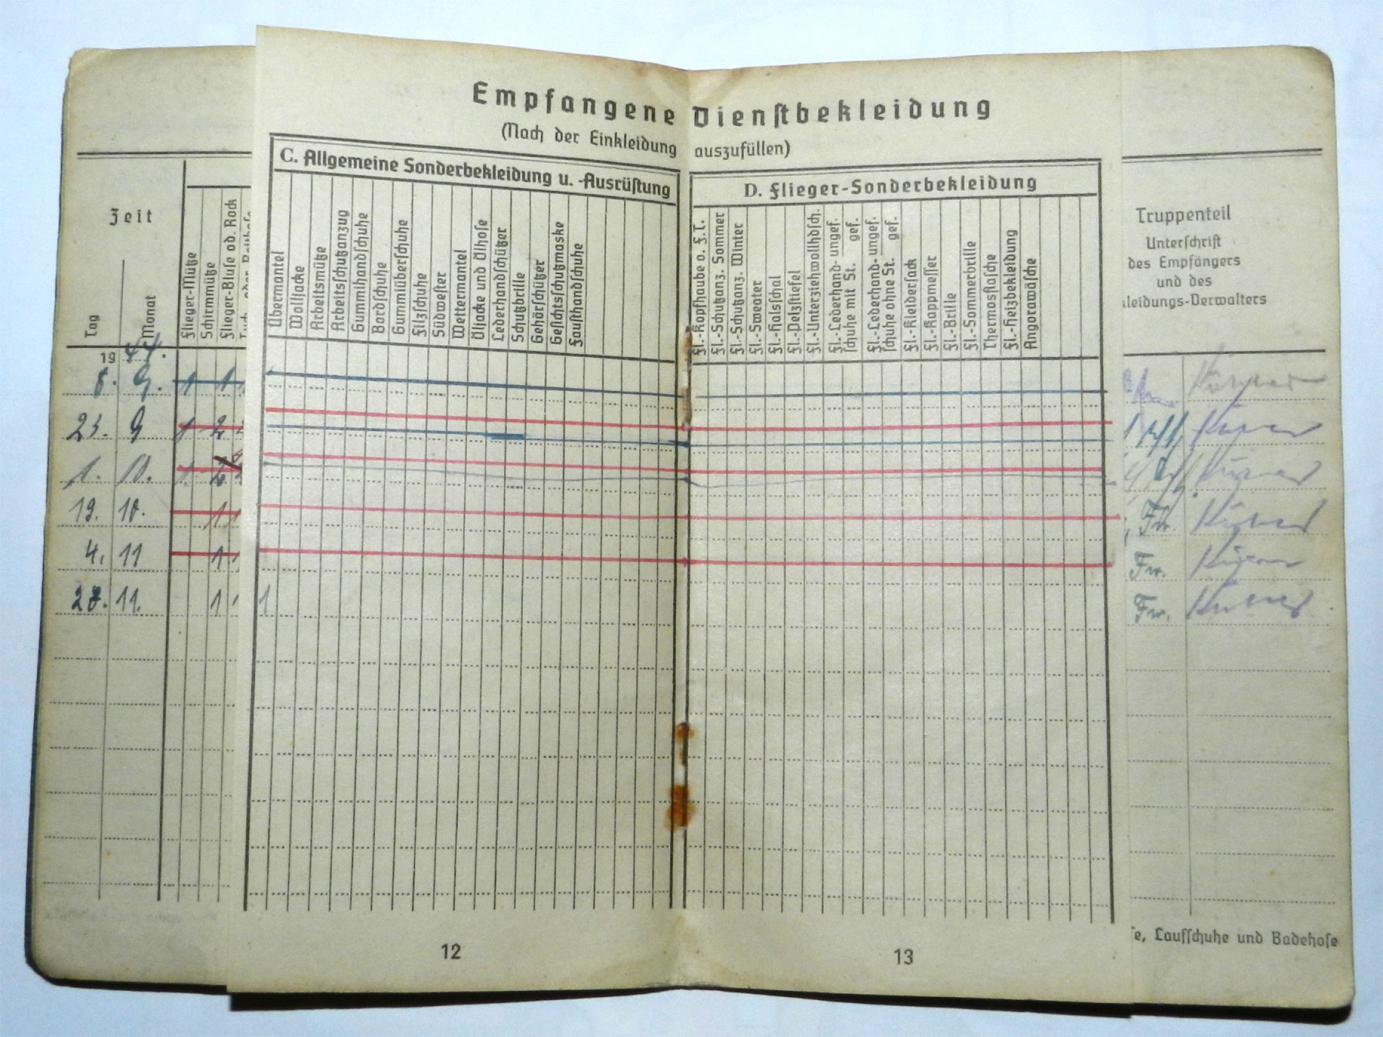 Empfangene Dienstbekleidung
(Nach der Einkleidung auszufüllen)
Zeit
Tag
Monat
Flieger-Mütze
Schirmmütze
Flieger-Bluse od. Rock
C. Allgemeine Sonderbekleidung u. -Ausrüstung
Übermantel
Wolljacke
Arbeitsmütze
Arbeitsschutzanzug
Gummihandschuhe
Bordschuhe
Gummiüberschuhe
Filzschuhe
Südwester
Wettermantel
Öljacke und Ölhose
Lederhandschützer
Schutzbrille
Gehörschützer
Gesichtsschutzmaske
Fausthandschuhe
D. Flieger-Sonderbekleidung
Fl.-Kopfhaube o. F.T.
Fl.-Schutzanz. Sommer
Fl.-Schutzanz. Winter
Fl.-Sweater
Fl.-Halsschal
Fl.-Pelzstiefel
Fl.-Unterziehwollhdsch.
Fl.-Lederhand- ungef.
schuhe mit St. gef.
Fl.-Lederhand- ungef.
schuhe ohne St. gef.
Fl.-Kleidersack
Fl.-Kappmesser
Fl.-Brille
Fl.-Sommerbrille
Thermosflasche
Fl.-Heizbekleidung
Angorawäsche
Truppenteil
Unterschrift
des Empfängers
und des
leidungs-Verwalters
19 44.
8. 9. 1 1
23. 9 1 2
1. 10. 1
19. 10. 1 1 Fw.
4. 11 1 1 Fw.
28. 11. 1 1 1 Fw.
e, Laufschuhe und Badehose
12
13